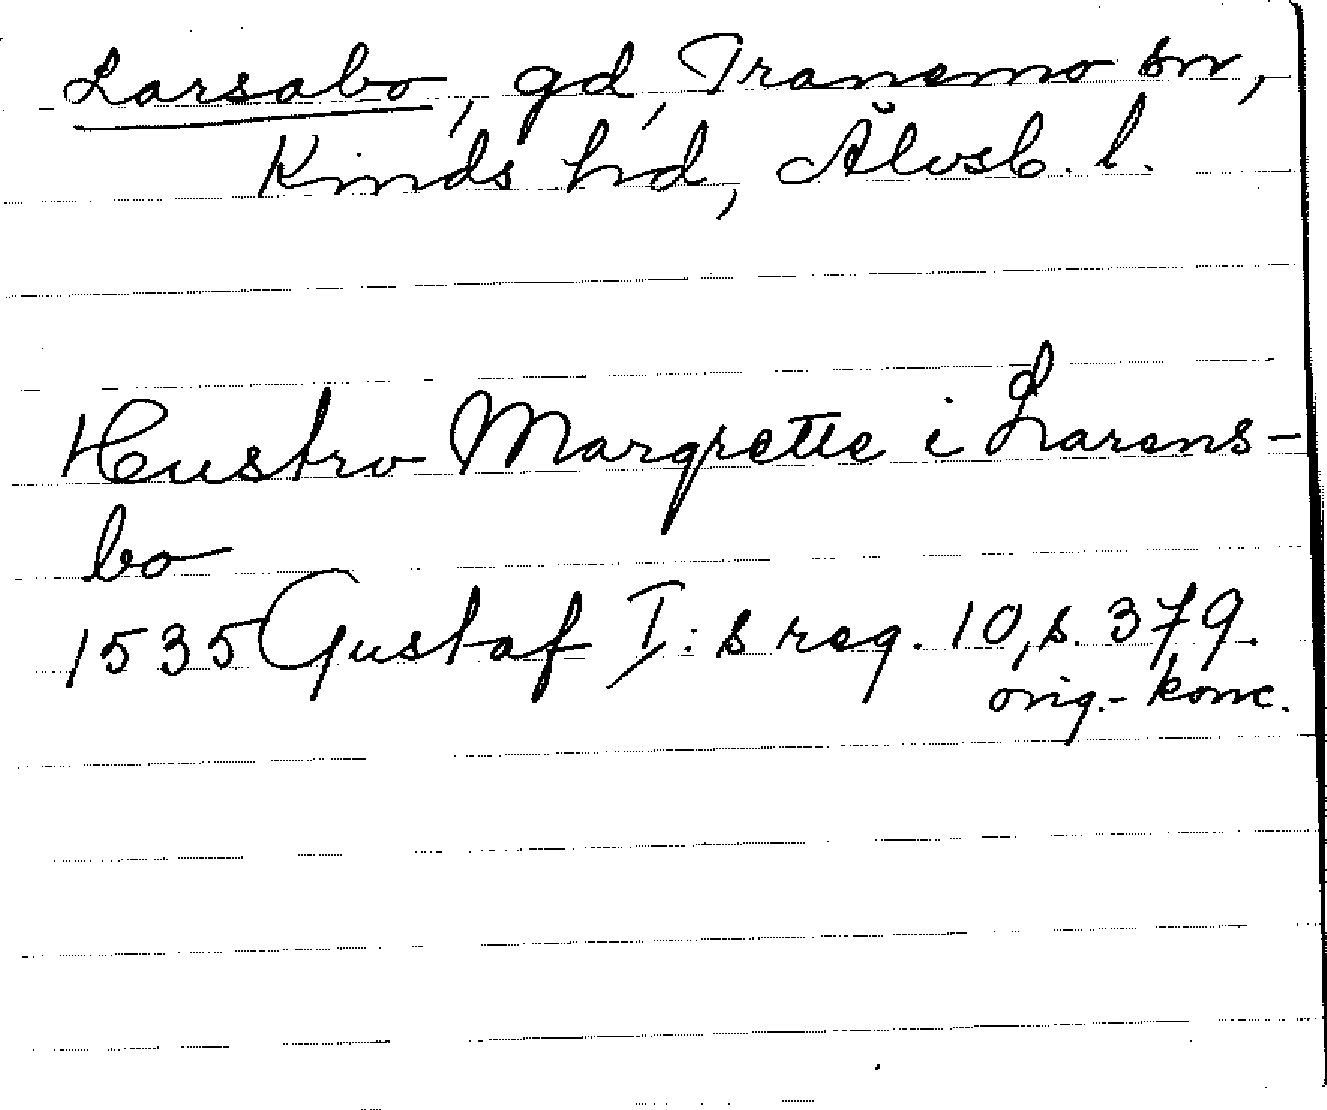 Larsabo, gd, Tranemo sn,
Kinds hd, Älvsb. l.
Hustro Margrette i Larens-
bo
1535 Gustaf I:s reg. 10, s. 379
orig.-konc.